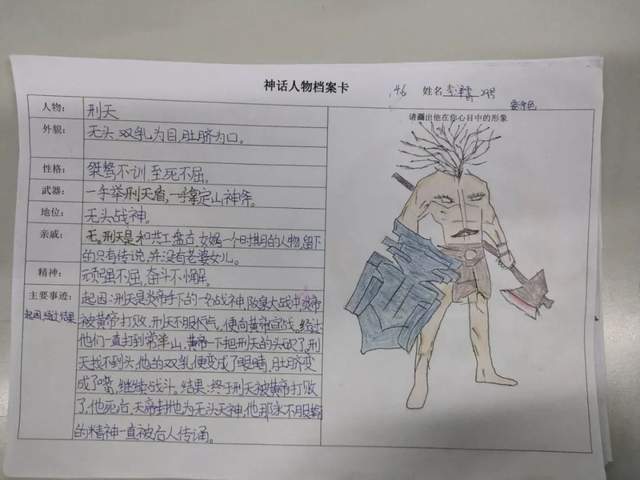 神话人物档案卡
46 姓名
要涂色
人物： 刑天
请画出他在你心目中的形象
外貌： 无头,双乳为目,肚脐为口。
性格： 桀骜不训 至死不屈。
武器： 一手举刑天盾,一手拿定山神斧。
地位： 无头战神。
亲戚： 无。刑天是和共工盘古、女娲一个时期的人物,留下
的只有传说,并没有老婆女儿。
精神： 顽强不屈,奋斗不懈。
主要事迹：
起因,经过,结果
起因:刑天是炎帝手下的一名战神,阪泉大战中炎帝
被黄帝打败,刑天不服气,便向黄帝宣战。经过:
他们一直打到常羊山,黄帝一下把刑天的头砍了,刑
天找不到头,他的双乳便变成了眼睛,肚脐变
成了嘴,继续战斗。结果:终于刑天被黄帝打败
了,他死后,天帝封他为无头天神,他那永不服输
的精神一直被后人传诵。